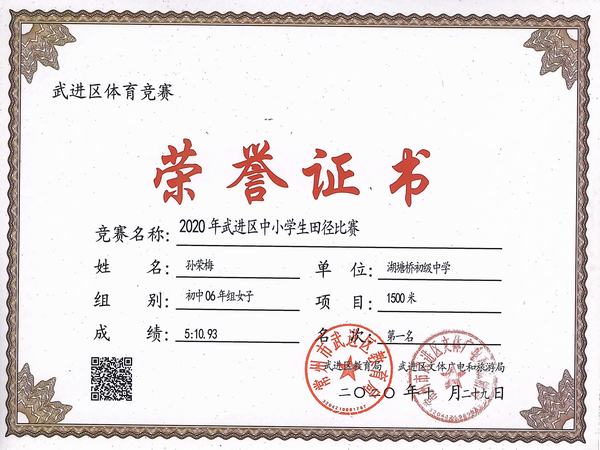 武进区体育竞赛
荣誉证书
竞赛名称：2020年武进区中小学生田径比赛
姓 名：孙荣梅 单 位：湖塘桥初级中学
组 别：初中06年组女子 项 目：1500米
成 绩：5:10.93 名 次：第一名
武进区教育局 武进区文体广电和旅游局
二〇二〇年十 月二十九日
常州市武进区教育局